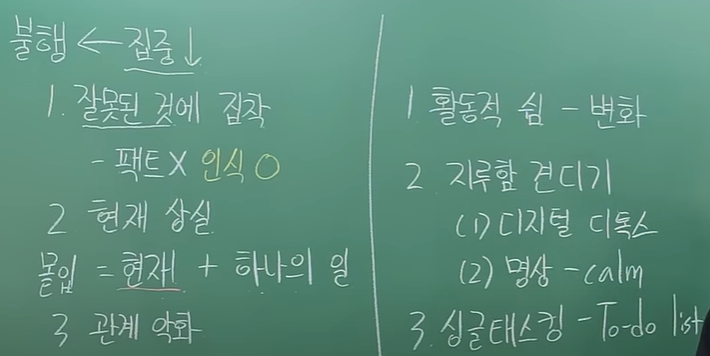 불행 ← 집중↓
1. 잘못된 것에 집착
- 팩트X 인식O
2 현재 상실
몰입 = 현재 + 하나의 일
3 관계 악화
1 활동적 쉼 - 변화
2 지루함 견디기
(1) 디지털 디톡스
(2) 명상 - calm
3. 싱글태스킹 - To-do list